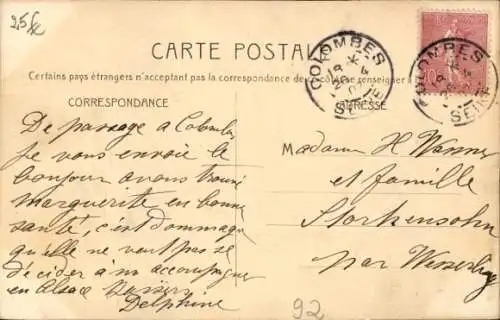 25f
CARTE POSTALE
Certains pays étrangers n'acceptant pas la correspondance de ce côté, se renseigner à la
CORRESPONDANCE
ADRESSE
COLOMBES
SEINE
COLOMBES
SEINE
10
De passage a Colombes
je vous envoie le
bonjour avons trouvé
marguerite en bonne
santé, c'est dommage
qu'elle ne veut pas se
décider à m'accompagner
en Alsace Baisers
Delphine
Madame H Wanner
et famille
Storkensohn
par Wesserling
92